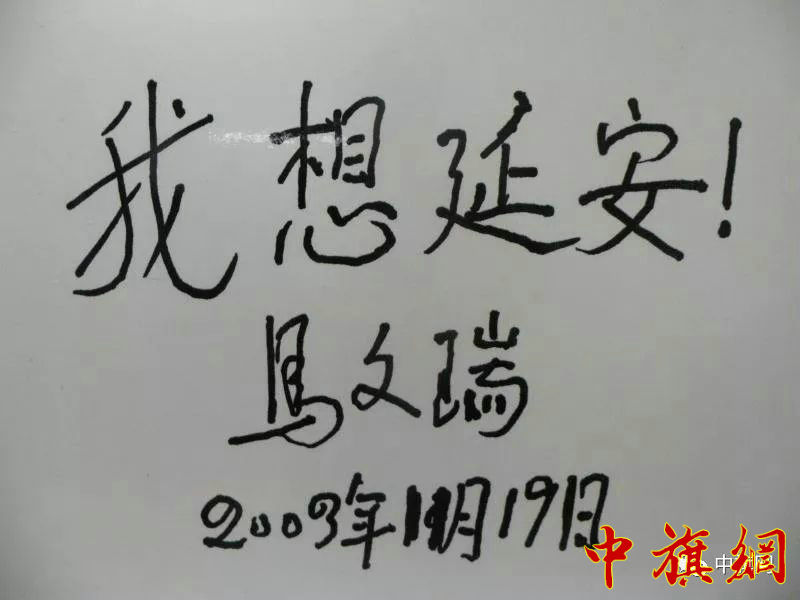 我想延安!
馬文瑞
2003年11月19日
中旗網